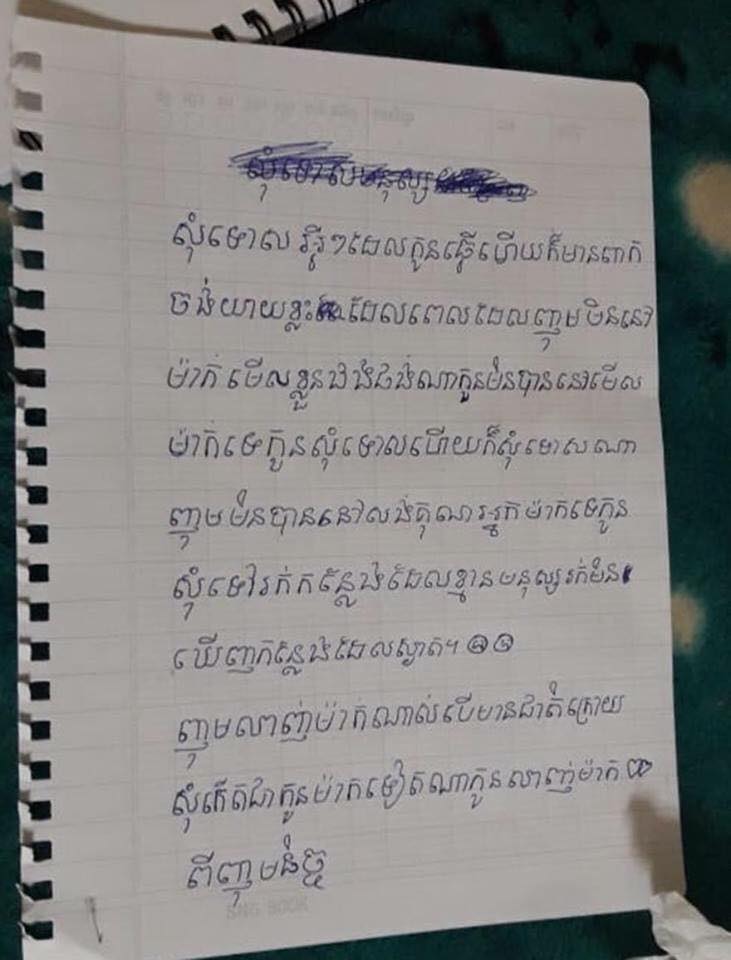 សុំទោសមនុស្ស
សុំទោស រឿងៗដែលកូនធ្វើហើយក៏មានពាក់
ចង់យាយខ្លះ ដែលពេលដែលញុមមិននៅ
ម៉ាក់ មើលខ្លួនងងផងណាកូនមិនបាននៅមើល
ម៉ាក់ទេកូនសុំទោសហើយក៏សុំទោសណា
ញុមមិនបាននៅសងគុណអ្នកម៉ាក់ទេកូន
សុំទៅរក់កន្លែងដែលគ្មានមនុស្សរក់មិន
ឃើញកន្លែងដែលស្ងាត។
ញុមលាញ់ម៉ាក់ណាល់បើមានជាតិក្រោយ
សុំកើតជាកូនម៉ាកទៀតណាកូនលាញ់ម៉ាក់
ពីញុម